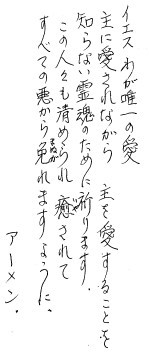 イエス わが唯一の愛
主に愛されながら 主を愛することを
知らない霊魂のために祈ります.
この人々も清められ 癒されて
すべての悪から免れますように.
アーメン.